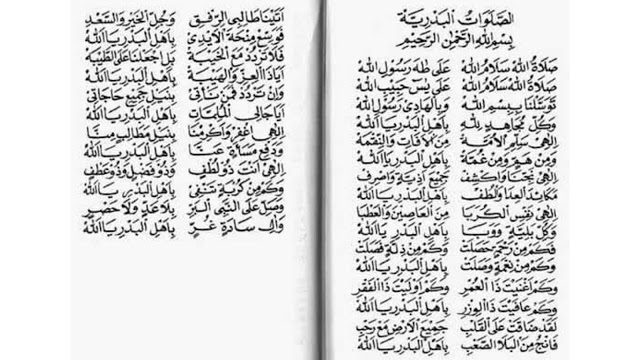 الصلوات البدرية
بسم الله الرحمن الرحيم
صلاة الله سلام الله على طه رسول الله
صلاة الله سلام الله على يس حبيب الله
توسلنا ببسم الله وبالهادي رسول الله
وكل مجاهد لله بأهل البدر يا الله
إلهي سلم الأمة من الآفات والنقمة
ومن هم ومن غمة بأهل البدر يا الله
إلهي نجنا واكشف جميع أذية واصرف
مكائد العدا والطف بأهل البدر يا الله
إلهي نفس الكربا من العاصين والعطبا
وكل بلية ووبا بأهل البدر يا الله
فكم من رحمة حصلت وكم من ذلة فصلت
وكم من نعمة وصلت بأهل البدر يا الله
وكم أغنيت ذا العمر وكم أوليت ذا الفقر
وكم عافيت ذا الوزر بأهل البدر يا الله
لقد ضاقت على القلب جميع الأرض مع رحب
فانج من البلا الصعب بأهل البدر يا الله
أتينا طالبي الرفق وجل الخير والسعد
فوسع منحة الأيدي بأهل البدر يا الله
فلا تردد مع الخيبة بل اجعلنا على الطيبة
أيا ذا العز والهيبة بأهل البدر يا الله
وإن تردد فمن نأتي بنيل جميع حاجاتي
أيا جالي الملمات بأهل البدر يا الله
إلهي اغفر وأكرمنا بنيل مطالب منا
ودفع مساءة عنا بأهل البدر يا الله
إلهي أنت ذو لطف وذو فضل وذو عطف
وكم من كربة تنفي بأهل البدر يا الله
وصل على النبي البر بلا عد ولا حصر
وآل سادة غر بأهل البدر يا الله